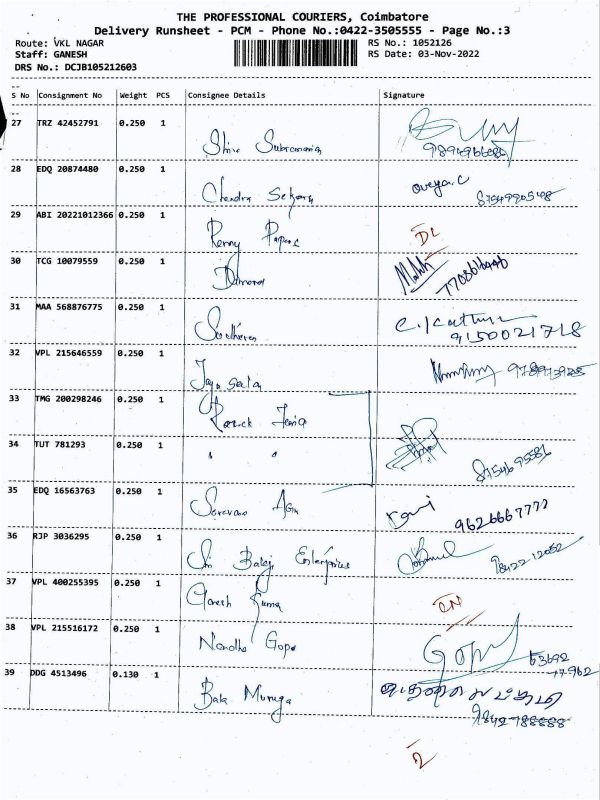 THE PROFESSIONAL COURIERS, Coimbatore
Delivery Runsheet - PCM - Phone No.:0422-3505555 - Page No.:3
Route: VKL NAGAR
RS No.: 1052126
Staff: GANESH
RS Date: 03-Nov-2022
DRS No.: DCJB105212603
S No Consignment No Weight PCS Consignee Details Signature
27 TRZ 42452791 0.250 1
Shiva Subramania
28 EDQ 20874480 0.250 1
Chendra Sekara
8754990548
29 ABI 20221012366 0.250 1
Renny Papers
DL
30 TCG 10079559 0.250 1
31 MAA 568876775 0.250 1
9150021718
32 VPL 215646559 0.250 1
33 TMG 200298246 0.250 1
34 TUT 781293 0.250 1
" "
8754695586
35 EDQ 16563763 0.250 1
Saravana
ravi
9626667777
36 RJP 3036295 0.250 1
Sri Balaji Enterprises
98422 12052
37 VPL 400255395 0.250 1
Ganesh Kuma
CN
38 VPL 215516172 0.250 1
Nandha Gopa
Gopal
63692
77962
39 DDG 4513496 0.130 1
Bala Muruga
9842788888
2